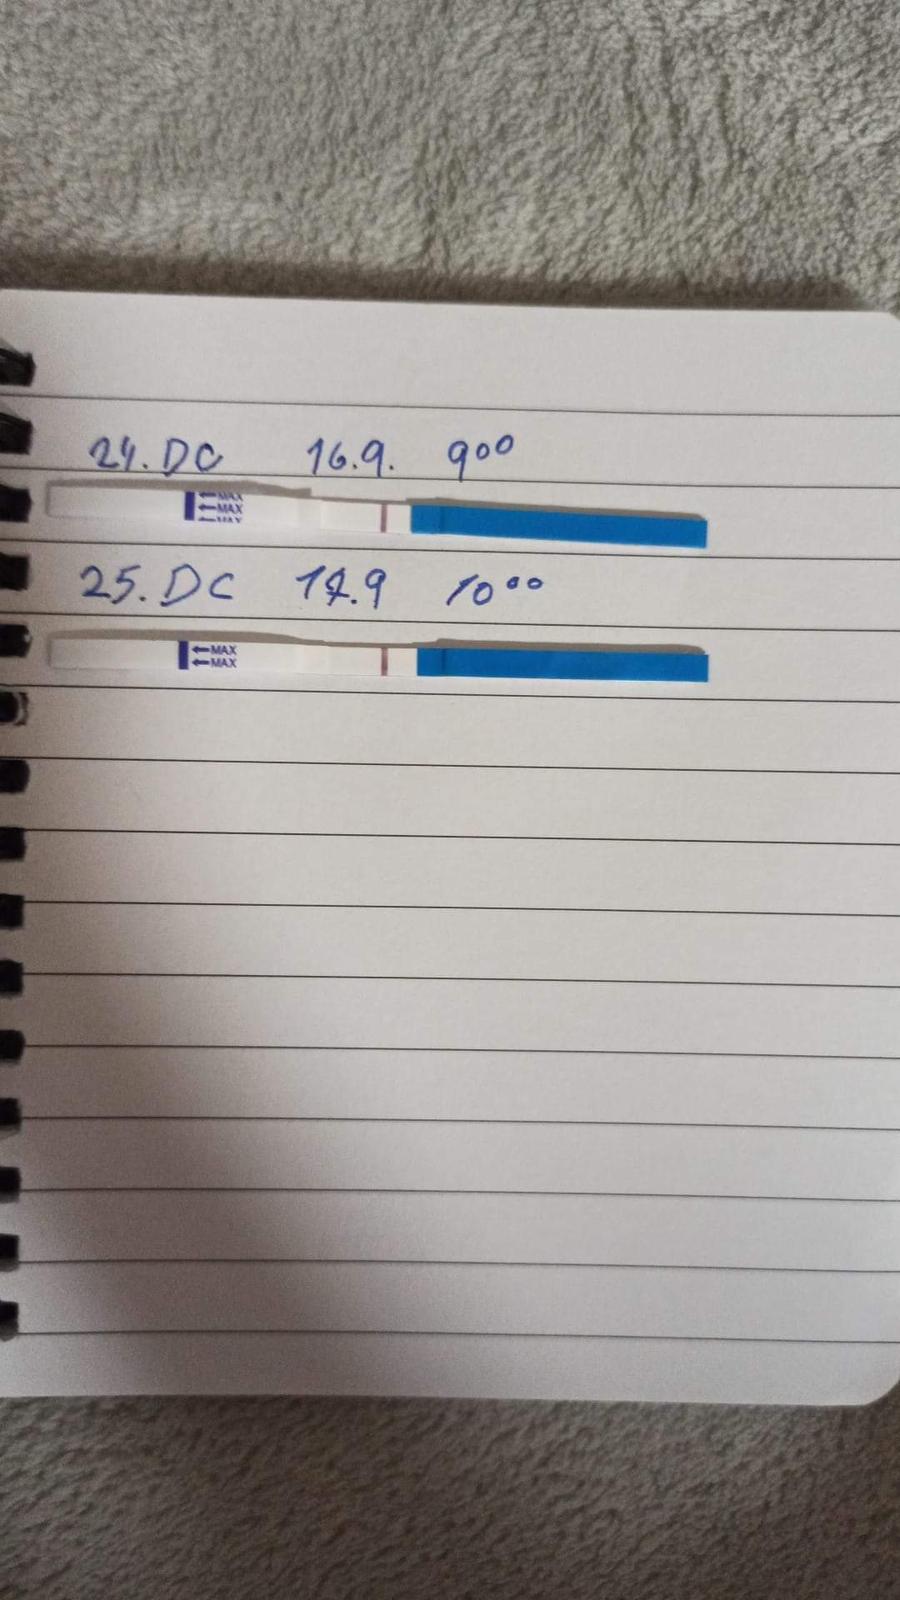 24. DC 16.9. 9⁰⁰
←MAX
←MAX
←MAX
25. DC 17.9 10⁰⁰
←MAX
←MAX